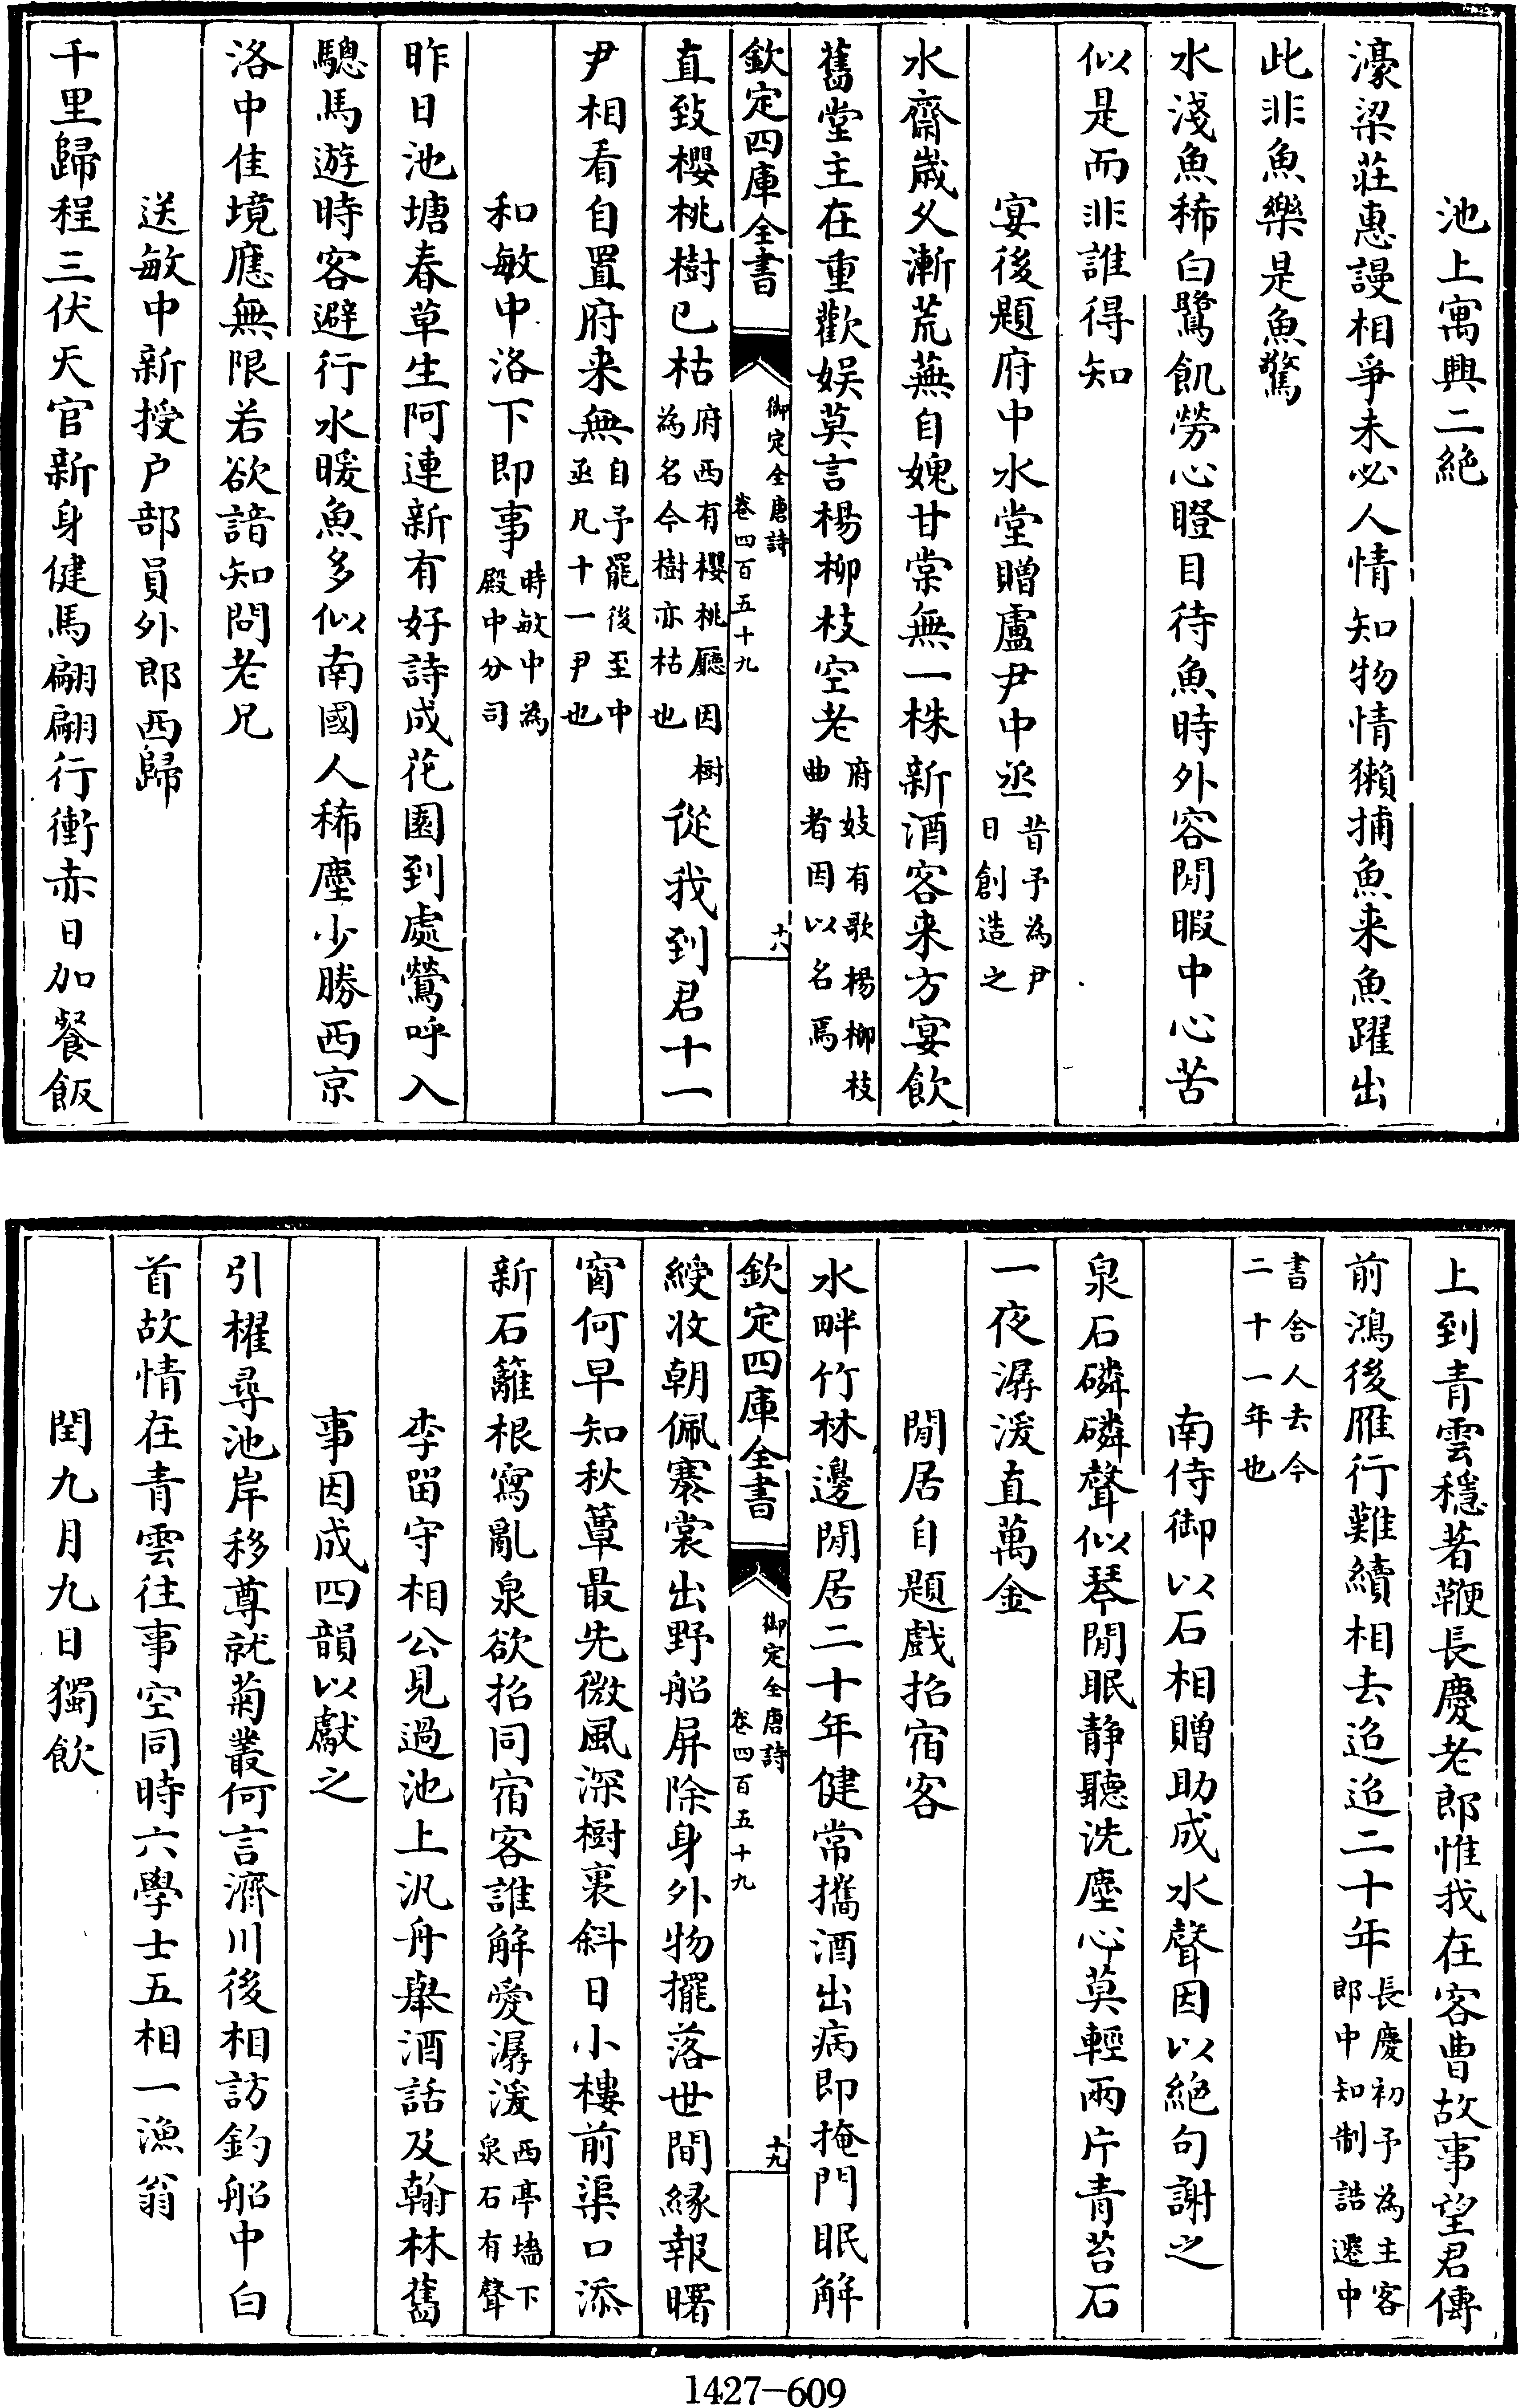 池上寓興二絶
濠梁莊惠謾相爭未必人情知物情獺捕魚来魚躍出
此非魚樂是魚驚
水淺魚稀白鷺飢勞心瞪目待魚時外容閒暇中心苦
似是而非誰得知
宴後題府中水堂贈盧尹中丞昔予為尹日創造之
水齋嵗乆漸荒蕪自媿甘棠無一株新酒客来方宴飲
舊堂主在重歡娱莫言楊柳枝空老府妓有歌楊柳枝曲者因以名焉
欽定四庫全書 御定全唐詩卷四百五十九 十八
直致櫻桃樹已枯府西有櫻桃廳因樹為名今樹亦枯也從我到君十一
尹相看自置府来無自予罷後至中丞凡十一尹也
和敏中洛下即事時敏中為殿中分司
昨日池塘春草生阿連新有好詩成花園到處鶯呼入
驄馬遊時客避行水暖魚多似南國人稀塵少勝西京
洛中佳境應無限若欲諳知問老兄
送敏中新授户部員外郎西歸
千里歸程三伏天官新身健馬翩翩行衝赤日加餐飯
上到青雲穩著鞭長慶老郎惟我在客曹故事望君傳
前鴻後雁行難續相去迢迢二十年長慶初予為主客郎中知制誥遷中
書舍人去今二十一年也
南侍御以石相贈助成水聲因以絶句謝之
泉石磷磷聲似琴閒眠静聽洗塵心莫輕兩片青苔石
一夜潺湲直萬金
閒居自題戲招宿客
水畔竹林邊閒居二十年健常攜酒出病即掩門眠解
欽定四庫全書 御定全唐詩卷四百五十九 十九
綬收朝佩褰裳出野船屏除身外物擺落世間緣報曙
窗何早知秋簟最先微風深樹裏斜日小樓前渠口添
新石籬根寫亂泉欲招同宿客誰解愛潺湲西亭墻下泉石有聲
李留守相公見過池上汎舟舉酒話及翰林舊
事因成四韻以獻之
引櫂尋池岸移尊就菊叢何言濟川後相訪釣船中白
首故情在青雲往事空同時六學士五相一漁翁
閏九月九日獨飲
1427-609